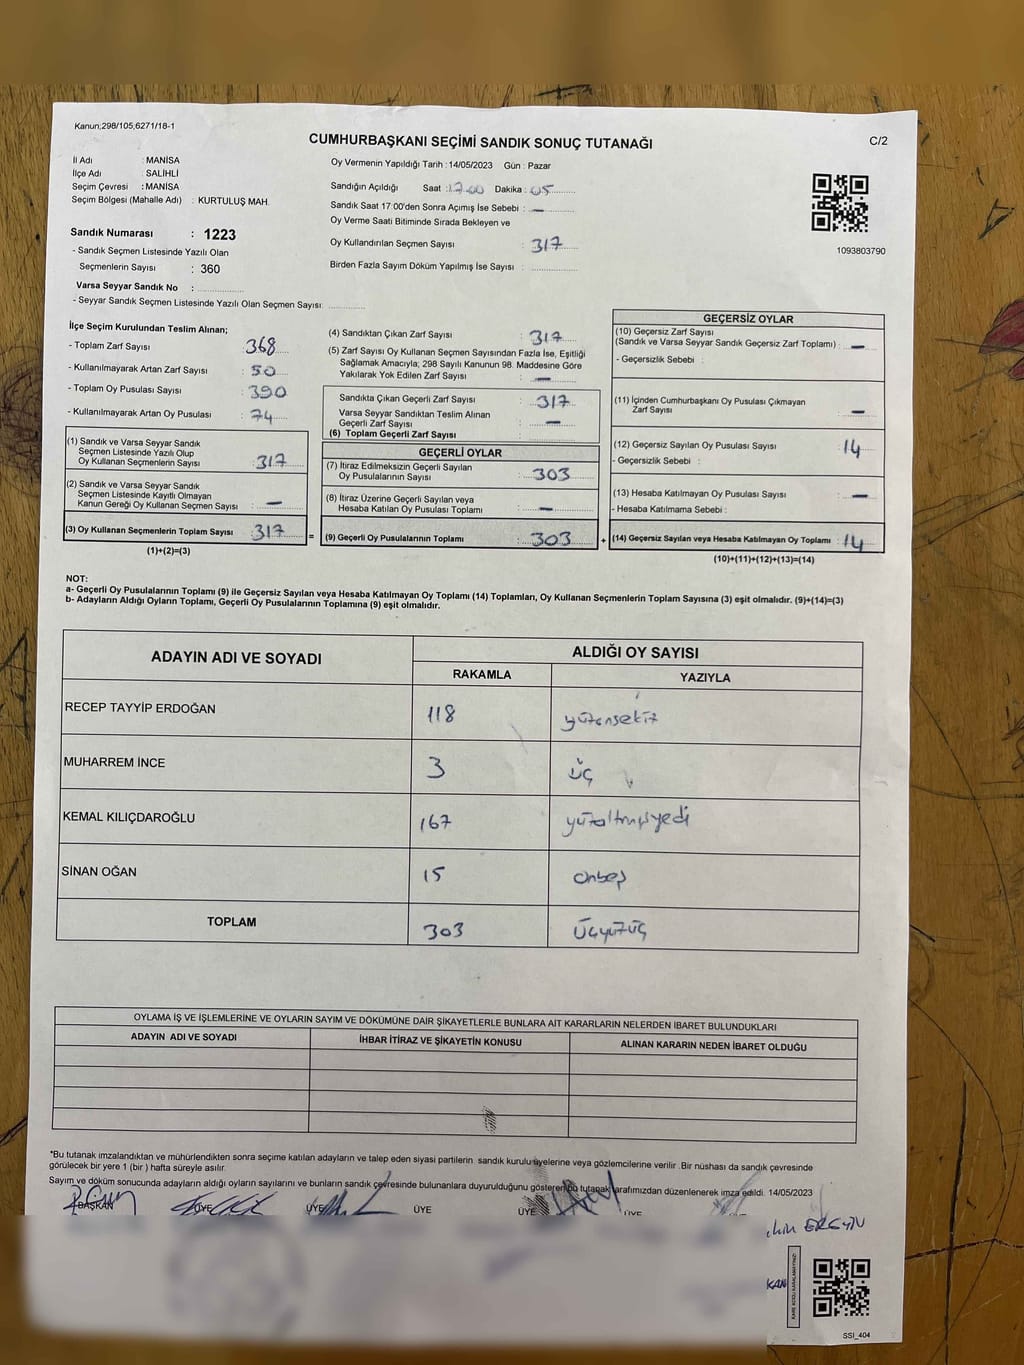 Kanun;298/105,6271/18-1
CUMHURBAŞKANI SEÇİMİ SANDIK SONUÇ TUTANAĞI
C/2
İl Adı : MANİSA
İlçe Adı : SALİHLİ
Seçim Çevresi : MANİSA
Seçim Bölgesi (Mahalle Adı) : KURTULUŞ MAH.
Sandık Numarası : 1223
- Sandık Seçmen Listesinde Yazılı Olan
Seçmenlerin Sayısı : 360
Varsa Seyyar Sandık No :
- Seyyar Sandık Seçmen Listesinde Yazılı Olan Seçmen Sayısı:
Oy Vermenin Yapıldığı Tarih : 14/05/2023 Gün : Pazar
Sandığın Açıldığı Saat : 17.00 Dakika : 05
Sandık Saat 17:00'den Sonra Açımış İse Sebebi : —
Oy Verme Saati Bitiminde Sırada Bekleyen ve
Oy Kullandırılan Seçmen Sayısı : 317
Birden Fazla Sayım Döküm Yapılmış İse Sayısı :
1093803790
İlçe Seçim Kurulundan Teslim Alınan;
- Toplam Zarf Sayısı : 368
- Kullanılmayarak Artan Zarf Sayısı : 50
- Toplam Oy Pusulası Sayısı : 390
- Kullanılmayarak Artan Oy Pusulası : 74
(1) Sandık ve Varsa Seyyar Sandık
Seçmen Listesinde Yazılı Olup
Oy Kullanan Seçmenlerin Sayısı : 317
(2) Sandık ve Varsa Seyyar Sandık
Seçmen Listesinde Kayıtlı Olmayan
Kanun Gereği Oy Kullanan Seçmen Sayısı : —
(3) Oy Kullanan Seçmenlerin Toplam Sayısı : 317
(1)+(2)=(3)
(4) Sandıktan Çıkan Zarf Sayısı : 317
(5) Zarf Sayısı Oy Kullanan Seçmen Sayısından Fazla İse, Eşitliği
Sağlamak Amacıyla; 298 Sayılı Kanunun 98. Maddesine Göre
Yakılarak Yok Edilen Zarf Sayısı : —
Sandıkta Çıkan Geçerli Zarf Sayısı : 317
Varsa Seyyar Sandıktan Teslim Alınan
Geçerli Zarf Sayısı : —
(6) Toplam Geçerli Zarf Sayısı :
GEÇERLİ OYLAR
(7) İtiraz Edilmeksizin Geçerli Sayılan
Oy Pusulalarının Sayısı : 303
(8) İtiraz Üzerine Geçerli Sayılan veya
Hesaba Katılan Oy Pusulaları Toplamı : —
= (9) Geçerli Oy Pusulalarının Toplamı : 303 +
GEÇERSİZ OYLAR
(10) Geçersiz Zarf Sayısı
(Sandık ve Varsa Seyyar Sandık Geçersiz Zarf Toplamı) : —
- Geçersizlik Sebebi :
(11) İçinden Cumhurbaşkanı Oy Pusulası Çıkmayan
Zarf Sayısı : —
(12) Geçersiz Sayılan Oy Pusulası Sayısı : 14
- Geçersizlik Sebebi :
(13) Hesaba Katılmayan Oy Pusulası Sayısı : —
- Hesaba Katılmama Sebebi :
(14) Geçersiz Sayılan veya Hesaba Katılmayan Oy Toplamı : 14
(10)+(11)+(12)+(13)=(14)
NOT:
a- Geçerli Oy Pusulalarının Toplamı (9) ile Geçersiz Sayılan veya Hesaba Katılmayan Oy Toplamı (14) Toplamları, Oy Kullanan Seçmenlerin Toplam Sayısına (3) eşit olmalıdır. (9)+(14)=(3)
b- Adayların Aldığı Oyların Toplamı, Geçerli Oy Pusulalarının Toplamına (9) eşit olmalıdır.
ADAYIN ADI VE SOYADI
ALDIĞI OY SAYISI
RAKAMLA YAZIYLA
RECEP TAYYİP ERDOĞAN 118 yüzonsekiz
MUHARREM İNCE 3 üç
KEMAL KILIÇDAROĞLU 167 yüzaltmışyedi
SİNAN OĞAN 15 onbeş
TOPLAM 303 üçyüzüç
OYLAMA İŞ VE İŞLEMLERİNE VE OYLARIN SAYIM VE DÖKÜMÜNE DAİR ŞİKAYETLERLE BUNLARA AİT KARARLARIN NELERDEN İBARET BULUNDUKLARI
ADAYIN ADI VE SOYADI İHBAR İTİRAZ VE ŞİKAYETİN KONUSU ALINAN KARARIN NEDEN İBARET OLDUĞU
*Bu tutanak imzalandıktan ve mühürlendikten sonra seçime katılan adayların ve talep eden siyasi partilerin sandık kurulu üyelerine veya gözlemcilerine verilir .Bir nüshası da sandık çevresinde
görülecek bir yere 1 (bir ) hafta süreyle asılır.
Sayım ve döküm sonucunda adayların aldığı oyların sayılarını ve bunların sandık çevresinde bulunanlara duyurulduğunu gösteren bu tutanak tarafımızdan düzenlenerek imza edildi. 14/05/2023
BAŞKAN ÜYE ÜYE ÜYE ÜYE ÜYE
KARE KODU KARALAMAYINIZ!
SSI_404